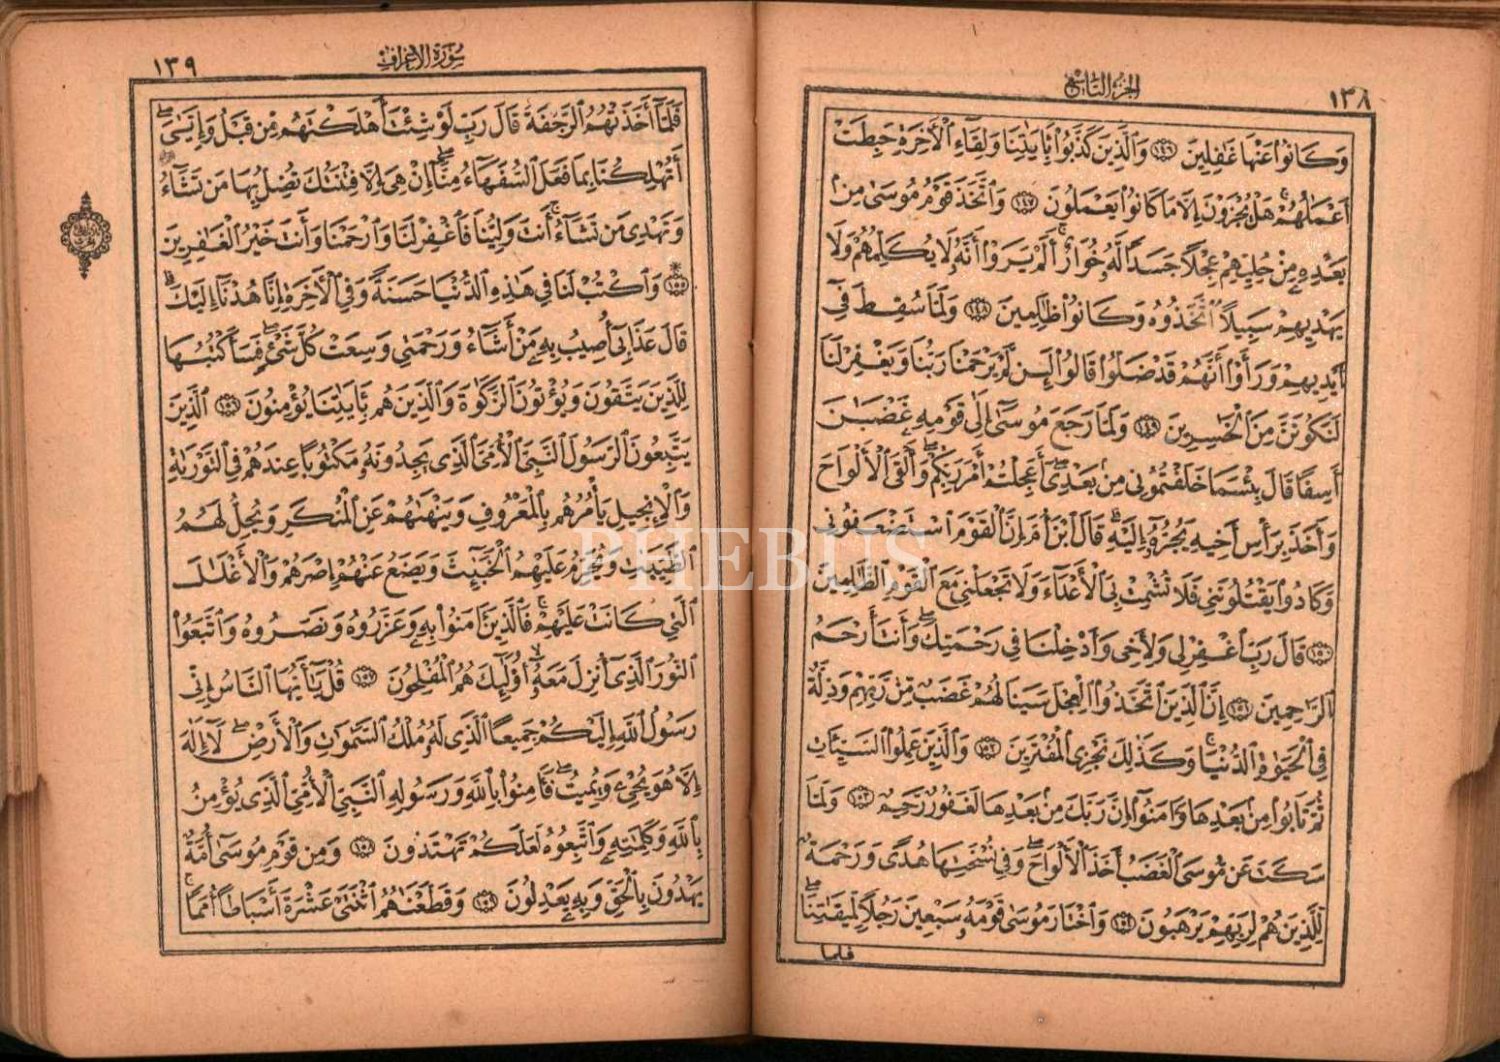 ١٣٨
الجزء التاسع
وَكَانُوا۟ عَنْهَا غَٰفِلِينَ ۝١٤٦ وَٱلَّذِينَ كَذَّبُوا۟ بِـَٔايَٰتِنَا وَلِقَآءِ ٱلْأَخِرَةِ حَبِطَتْ
أَعْمَٰلُهُمْ ۚ هَلْ يُجْزَوْنَ إِلَّا مَا كَانُوا۟ يَعْمَلُونَ ۝١٤٧ وَٱتَّخَذَ قَوْمُ مُوسَىٰ مِنۢ
بَعْدِهِۦ مِنْ حُلِيِّهِمْ عِجْلًا جَسَدًا لَّهُۥ خُوَارٌ ۚ أَلَمْ يَرَوْا۟ أَنَّهُۥ لَا يُكَلِّمُهُمْ وَلَا
يَهْدِيهِمْ سَبِيلًا ٱتَّخَذُوهُ وَكَانُوا۟ ظَٰلِمِينَ ۝١٤٨ وَلَمَّا سُقِطَ فِىٓ
أَيْدِيهِمْ وَرَأَوْا۟ أَنَّهُمْ قَدْ ضَلُّوا۟ قَالُوا۟ لَئِن لَّمْ يَرْحَمْنَا رَبُّنَا وَيَغْفِرْ لَنَا
لَنَكُونَنَّ مِنَ ٱلْخَٰسِرِينَ ۝١٤٩ وَلَمَّا رَجَعَ مُوسَىٰٓ إِلَىٰ قَوْمِهِۦ غَضْبَٰنَ
أَسِفًا قَالَ بِئْسَمَا خَلَفْتُمُونِى مِنۢ بَعْدِىٓ ۖ أَعَجِلْتُمْ أَمْرَ رَبِّكُمْ ۖ وَأَلْقَى ٱلْأَلْوَاحَ
وَأَخَذَ بِرَأْسِ أَخِيهِ يَجُرُّهُۥٓ إِلَيْهِ ۚ قَالَ ٱبْنَ أُمَّ إِنَّ ٱلْقَوْمَ ٱسْتَضْعَفُونِى
وَكَادُوا۟ يَقْتُلُونَنِى فَلَا تُشْمِتْ بِىَ ٱلْأَعْدَآءَ وَلَا تَجْعَلْنِى مَعَ ٱلْقَوْمِ ٱلظَّٰلِمِينَ
۝١٥٠ قَالَ رَبِّ ٱغْفِرْ لِى وَلِأَخِى وَأَدْخِلْنَا فِى رَحْمَتِكَ ۖ وَأَنتَ أَرْحَمُ
ٱلرَّٰحِمِينَ ۝١٥١ إِنَّ ٱلَّذِينَ ٱتَّخَذُوا۟ ٱلْعِجْلَ سَيَنَالُهُمْ غَضَبٌ مِّن رَّبِّهِمْ وَذِلَّةٌ
فِى ٱلْحَيَوٰةِ ٱلدُّنْيَا ۚ وَكَذَٰلِكَ نَجْزِى ٱلْمُفْتَرِينَ ۝١٥٢ وَٱلَّذِينَ عَمِلُوا۟ ٱلسَّيِّـَٔاتِ
ثُمَّ تَابُوا۟ مِنۢ بَعْدِهَا وَءَامَنُوٓا۟ إِنَّ رَبَّكَ مِنۢ بَعْدِهَا لَغَفُورٌ رَّحِيمٌ ۝١٥٣ وَلَمَّا
سَكَتَ عَن مُّوسَى ٱلْغَضَبُ أَخَذَ ٱلْأَلْوَاحَ ۖ وَفِى نُسْخَتِهَا هُدًى وَرَحْمَةٌ
لِّلَّذِينَ هُمْ لِرَبِّهِمْ يَرْهَبُونَ ۝١٥٤ وَٱخْتَارَ مُوسَىٰ قَوْمَهُۥ سَبْعِينَ رَجُلًا لِّمِيقَٰتِنَا ۖ
فلما
سورة الأعراف
١٣٩
فَلَمَّآ أَخَذَتْهُمُ ٱلرَّجْفَةُ قَالَ رَبِّ لَوْ شِئْتَ أَهْلَكْتَهُم مِّن قَبْلُ وَإِيَّٰىَ ۖ
أَتُهْلِكُنَا بِمَا فَعَلَ ٱلسُّفَهَآءُ مِنَّآ ۖ إِنْ هِىَ إِلَّا فِتْنَتُكَ تُضِلُّ بِهَا مَن تَشَآءُ
وَتَهْدِى مَن تَشَآءُ ۖ أَنتَ وَلِيُّنَا فَٱغْفِرْ لَنَا وَٱرْحَمْنَا وَأَنتَ خَيْرُ ٱلْغَٰفِرِينَ
۝١٥٥ وَٱكْتُبْ لَنَا فِى هَٰذِهِ ٱلدُّنْيَا حَسَنَةً وَفِى ٱلْأَخِرَةِ إِنَّا هُدْنَآ إِلَيْكَ ۚ
قَالَ عَذَابِىٓ أُصِيبُ بِهِۦ مَنْ أَشَآءُ وَرَحْمَتِى وَسِعَتْ كُلَّ شَىْءٍ ۖ فَسَأَكْتُبُهَا
لِلَّذِينَ يَتَّقُونَ وَيُؤْتُونَ ٱلزَّكَوٰةَ وَٱلَّذِينَ هُم بِـَٔايَٰتِنَا يُؤْمِنُونَ ۝١٥٦ ٱلَّذِينَ
يَتَّبِعُونَ ٱلرَّسُولَ ٱلنَّبِىَّ ٱلْأُمِّىَّ ٱلَّذِى يَجِدُونَهُۥ مَكْتُوبًا عِندَهُمْ فِى ٱلتَّوْرَىٰةِ
وَٱلْإِنجِيلِ يَأْمُرُهُم بِٱلْمَعْرُوفِ وَيَنْهَىٰهُمْ عَنِ ٱلْمُنكَرِ وَيُحِلُّ لَهُمُ
ٱلطَّيِّبَٰتِ وَيُحَرِّمُ عَلَيْهِمُ ٱلْخَبَٰٓئِثَ وَيَضَعُ عَنْهُمْ إِصْرَهُمْ وَٱلْأَغْلَٰلَ
ٱلَّتِى كَانَتْ عَلَيْهِمْ ۚ فَٱلَّذِينَ ءَامَنُوا۟ بِهِۦ وَعَزَّرُوهُ وَنَصَرُوهُ وَٱتَّبَعُوا۟
ٱلنُّورَ ٱلَّذِىٓ أُنزِلَ مَعَهُۥٓ ۙ أُو۟لَٰٓئِكَ هُمُ ٱلْمُفْلِحُونَ ۝١٥٧ قُلْ يَٰٓأَيُّهَا ٱلنَّاسُ إِنِّى
رَسُولُ ٱللَّهِ إِلَيْكُمْ جَمِيعًا ٱلَّذِى لَهُۥ مُلْكُ ٱلسَّمَٰوَٰتِ وَٱلْأَرْضِ ۖ لَآ إِلَٰهَ
إِلَّا هُوَ يُحْىِۦ وَيُمِيتُ ۖ فَـَٔامِنُوا۟ بِٱللَّهِ وَرَسُولِهِ ٱلنَّبِىِّ ٱلْأُمِّىِّ ٱلَّذِى يُؤْمِنُ
بِٱللَّهِ وَكَلِمَٰتِهِۦ وَٱتَّبِعُوهُ لَعَلَّكُمْ تَهْتَدُونَ ۝١٥٨ وَمِن قَوْمِ مُوسَىٰٓ أُمَّةٌ
يَهْدُونَ بِٱلْحَقِّ وَبِهِۦ يَعْدِلُونَ ۝١٥٩ وَقَطَّعْنَٰهُمُ ٱثْنَتَىْ عَشْرَةَ أَسْبَاطًا أُمَمًا ۚ
PHEBUS